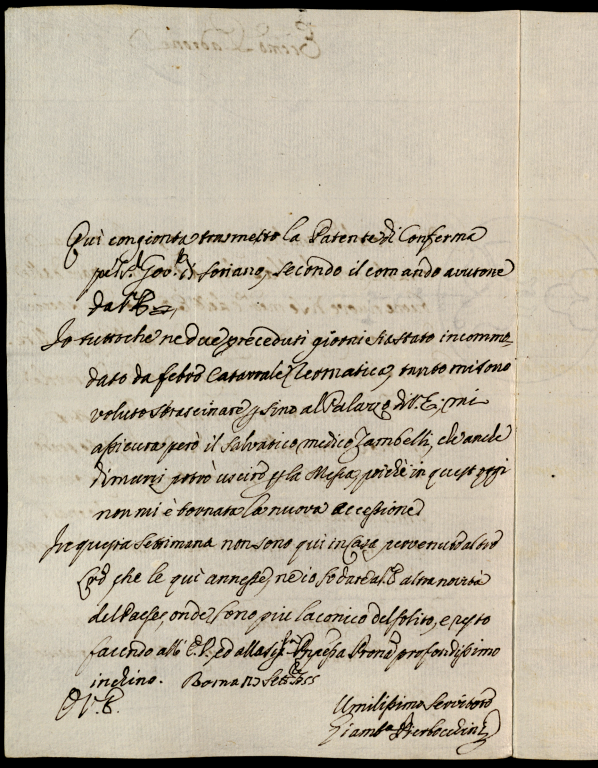 Qui congionta trasmetto la Patente di Conferma
pel Sr. Gov.re di Soriano, secondo il comando avutone
da V.E.
Io tuttoche ne due preceduti giorni sia stato incommo-
dato da febre Catarrale Reomatica, tanto mi sono
voluto strascinare sino al Palazzo di V.E.; mi
assicura però il Salvatico medico Zambelli, che anche
dimani potrò uscire per la Messa, poiche in quest'oggi
non mi è tornata la nuova accessione
In questa settimana non sono qui in Casa pervenute altre
che le qui annesse, ne io so dare a V.E. altra novità
del Paese, onde sono più laconico del solito, e resto
facendo all' E.V. ed alla Principessa Prone profondissimo
inchino. Roma
D.V.E.
Umilissimo Servitore
Giamb.a